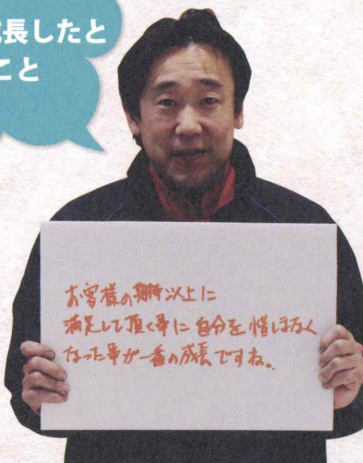 長したと
こと
お客様の期待以上に
満足して頂く事に自分を惜しまなく
なった事が一番の成長ですね。